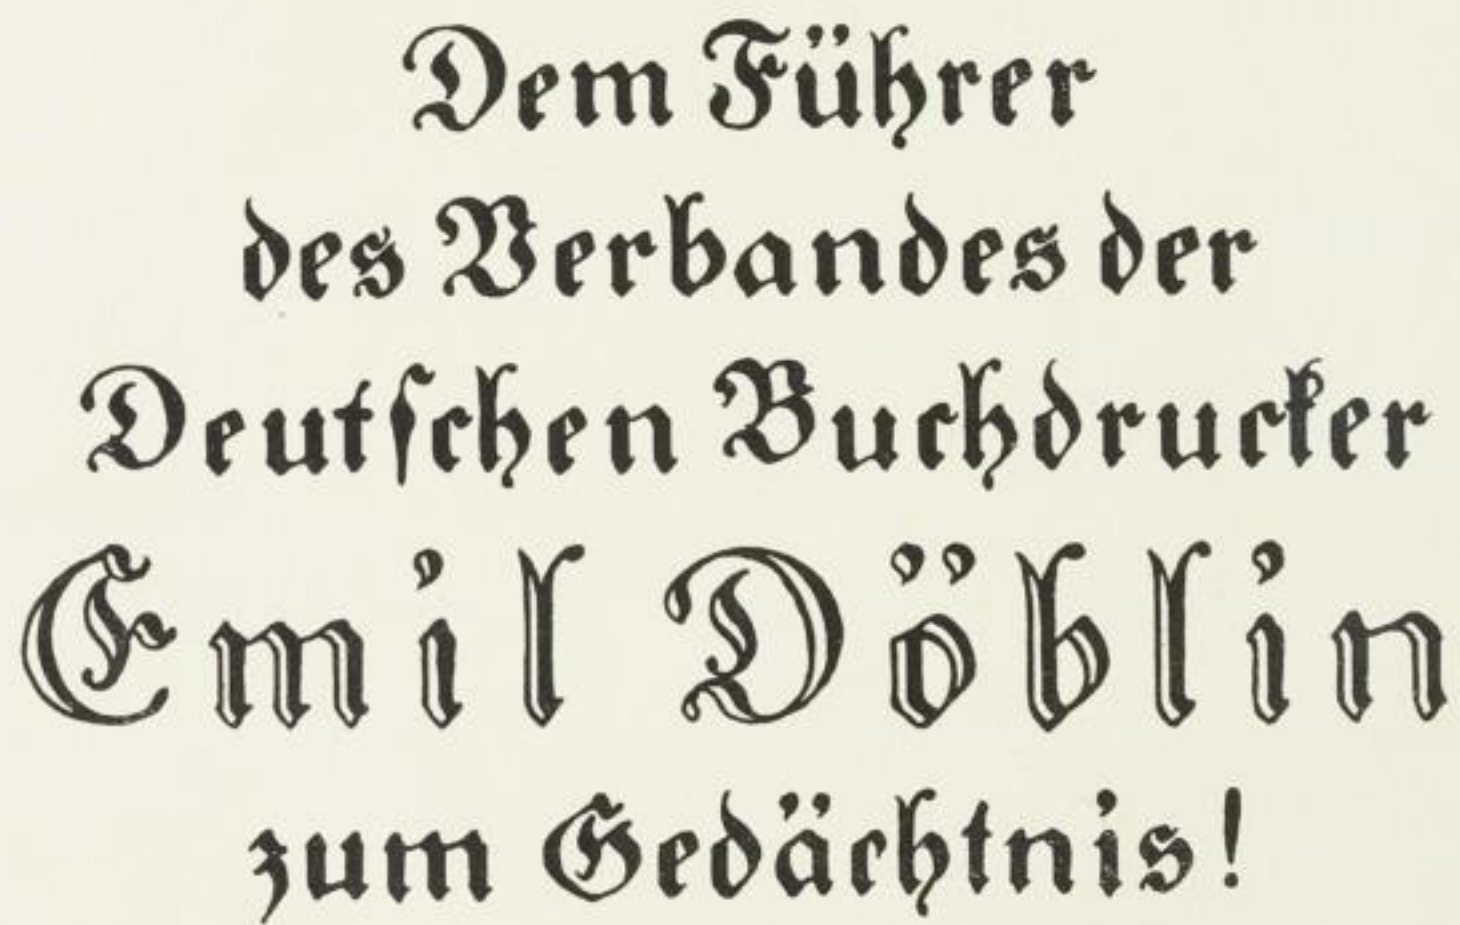 Dem Führer
des Verbandes der
Deutſchen Buchdrucker
Emil Döblin
zum Gedächtnis!